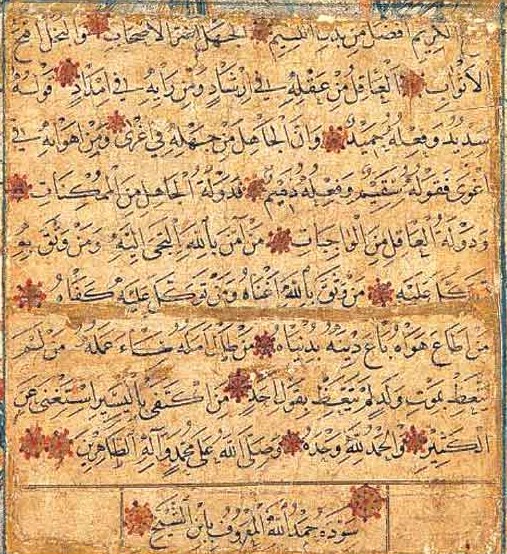 الكريم افضل من بذل اللئيم الجهل شر الاصحاب والبخل اقبح
الاثواب العاقل من عقله في ارشاد ومن رأيه في امداد قوله
سديد وفعله حميد وان الجاهل من جهله في اغرى ومن اهوائه في
اغوى فقوله سقيم وفعله ذميم فدولة الجاهل من الممكنات
ودولة العاقل من الواجبات من آمن بالله التجى اليه ومن وثق به
توكل عليه من وثق بالله اغناه ومن توكل عليه كفاه
من اطاع هواه باع دينه بدنياه من طال امله ساء عمله من لم
يتعظ بموت ولد لم يتعظ بقول احد من اكتفى باليسير استغنى عن
الكثير والحمد لله وحده وصلى الله على محمد وآله الطاهرين
سوده حمد الله المعروف بابن الشيخ